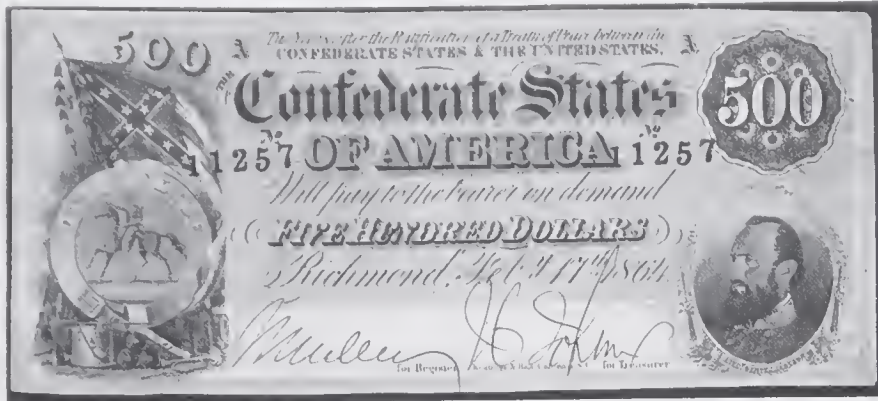 500 A Two Years after the Ratification of a Treaty of Peace between the A
CONFEDERATE STATES & THE UNITED STATES,
THE
Confederate States
500
No 11257 OF AMERICA No 11257
Will pay to the bearer on demand
FIVE HUNDRED DOLLARS
Richmond, Feb.y 17th 1864.
for Register for Treasurer